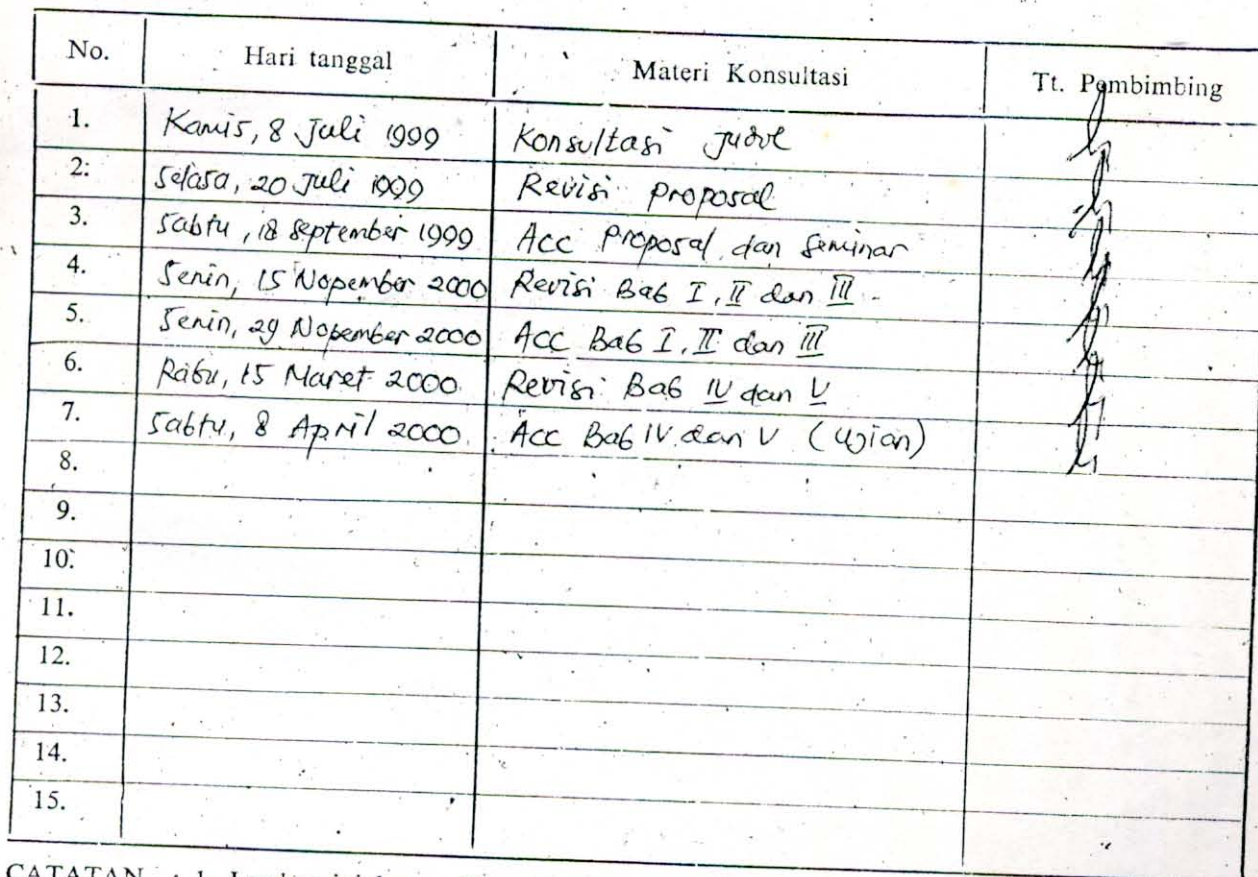 No. Hari tanggal Materi Konsultasi Tt. Pembimbing
1. Kamis, 8 Juli 1999 Konsultasi Judul
2. Selasa, 20 Juli 1999 Revisi Proposal
3. Sabtu, 18 September 1999 Acc Proposal dan Seminar
4. Senin, 15 Nopember 2000 Revisi Bab I, II dan III
5. Senin, 29 Nopember 2000 Acc Bab I, II dan III
6. Rabu, 15 Maret 2000 Revisi Bab IV dan V
7. Sabtu, 8 April 2000 Acc Bab IV dan V (Ujian)
8.
9.
10.
11.
12.
13.
14.
15.
CATATAN